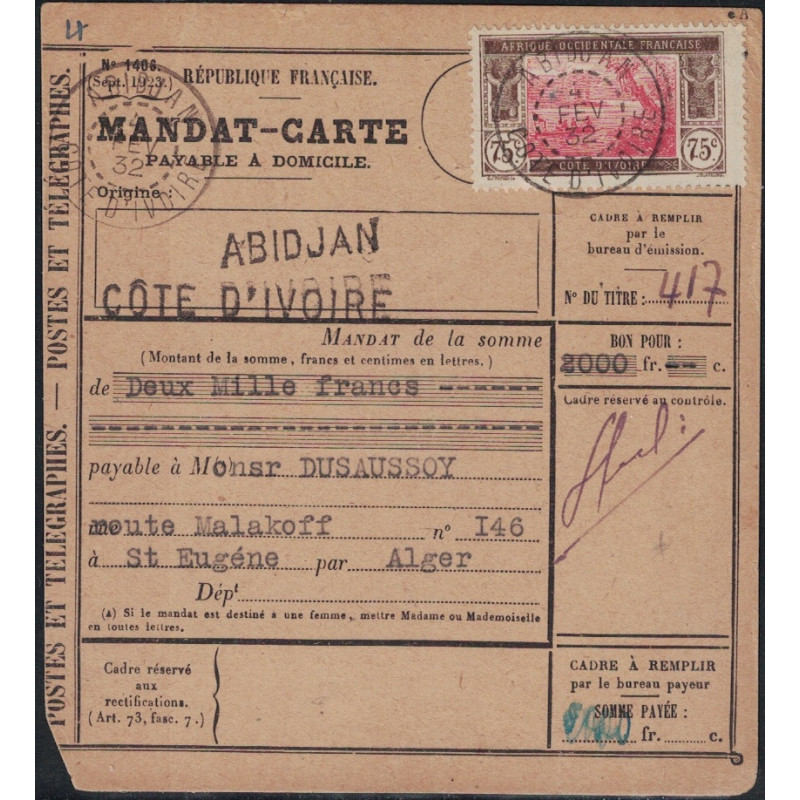 4
A
POSTES ET TÉLÉGRAPHES. — POSTES ET TÉLÉGRAPHES.
N° 1406.
(Sept. 1923.)
RÉPUBLIQUE FRANÇAISE.
MANDAT-CARTE
PAYABLE A DOMICILE.
Origine :
ABIDJAN
4
FEV
32
COTE D'IVOIRE
AFRIQUE OCCIDENTALE FRANÇAISE
75c
75c
CÔTE D'IVOIRE
ABIDJAN
4
FEV
32
COTE D'IVOIRE
ABIDJAN
CÔTE D'IVOIRE
CADRE À REMPLIR
par le
bureau d'émission.
N° DU TITRE : 417
MANDAT de la somme
(Montant de la somme, francs et centimes en lettres.)
de Deux Mille francs ------
BON POUR :
2000 fr. -- c.
Cadre réservé au contrôle.
payable à Monsr DUSAUSSOY
route Malakoff n° I46
à St Eugéne par Alger
Dépt
(A) Si le mandat est destiné a une femme, mettre Madame ou Mademoiselle
en toutes lettres.
Cadre réservé
aux
rectifications.
(Art. 73, fasc. 7.)
CADRE À REMPLIR
par le bureau payeur
SOMME PAYÉE :
fr. c.